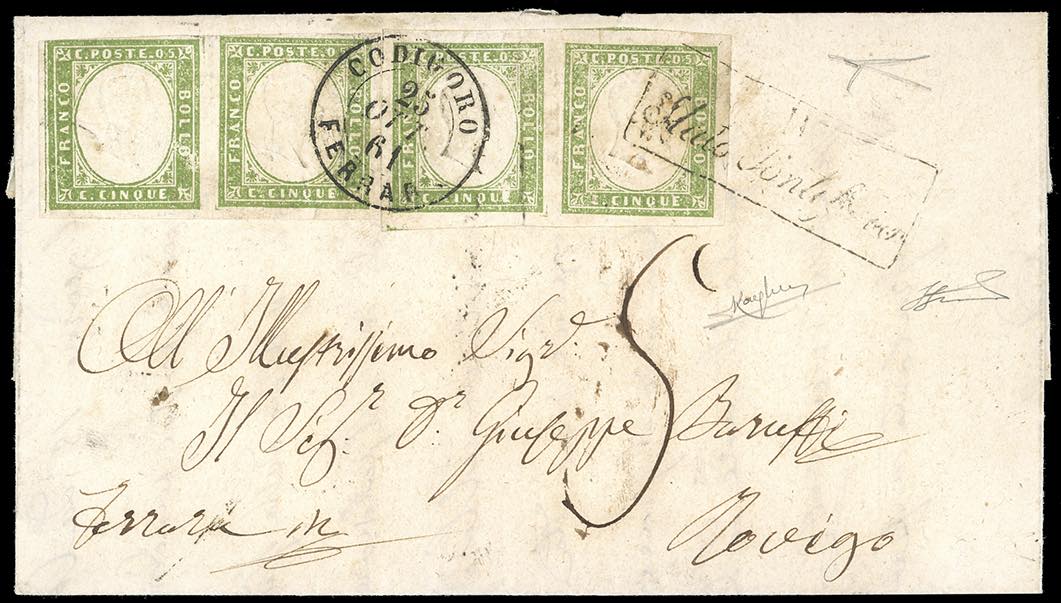 C. POSTE. 05. C. POSTE. 05. C. POSTE. 05. C. POSTE. 05.
FRANCO BOLLO FRANCO BOLLO FRANCO BOLLO FRANCO BOLLO
C. CINQUE C. CINQUE C. CINQUE C. CINQUE
CODIGORO
25
OTT
61
FERRAR
Stato Pontificio
5
All Illustrissimo Sigr.
Il Sigr. Dr. Giuseppe Baruffi
Ferrara
Rovigo